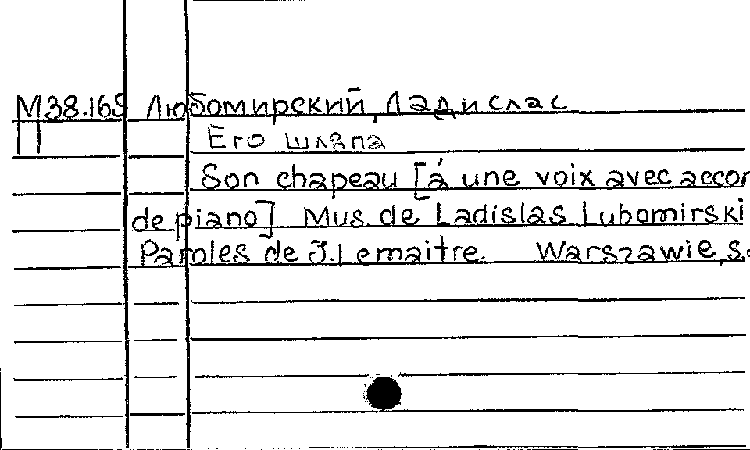 М38.165 Любомирский, Ладислас
П Его шляпа
Son chapeau [à une voix avec accom
de piano] Mus. de Ladislas Lubomirski
Paroles de J. Lemaitre. Warszawie, s.